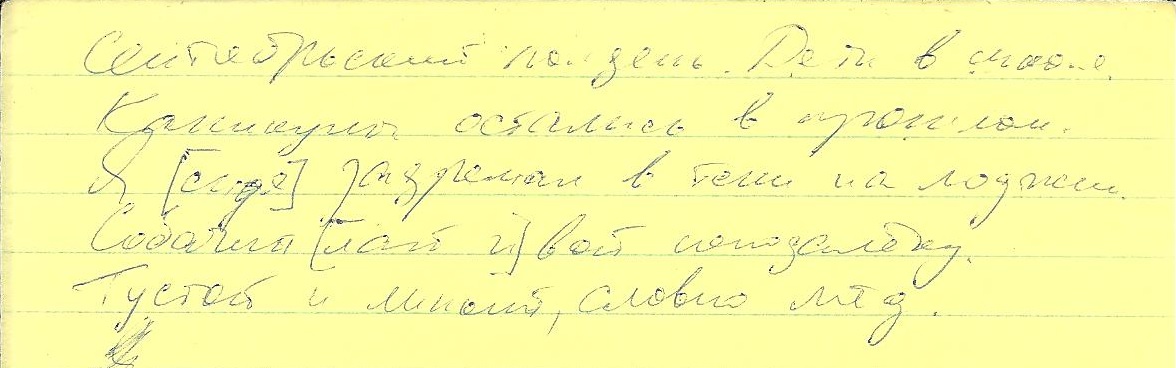 Сентябрьский полдень. Дети в школе.
Каникулы остались в прошлом.
Я [сидя] задремал в тени на лоджии.
Собачий [лай и] вой неподалёку.
Густой и липкий, словно мёд.